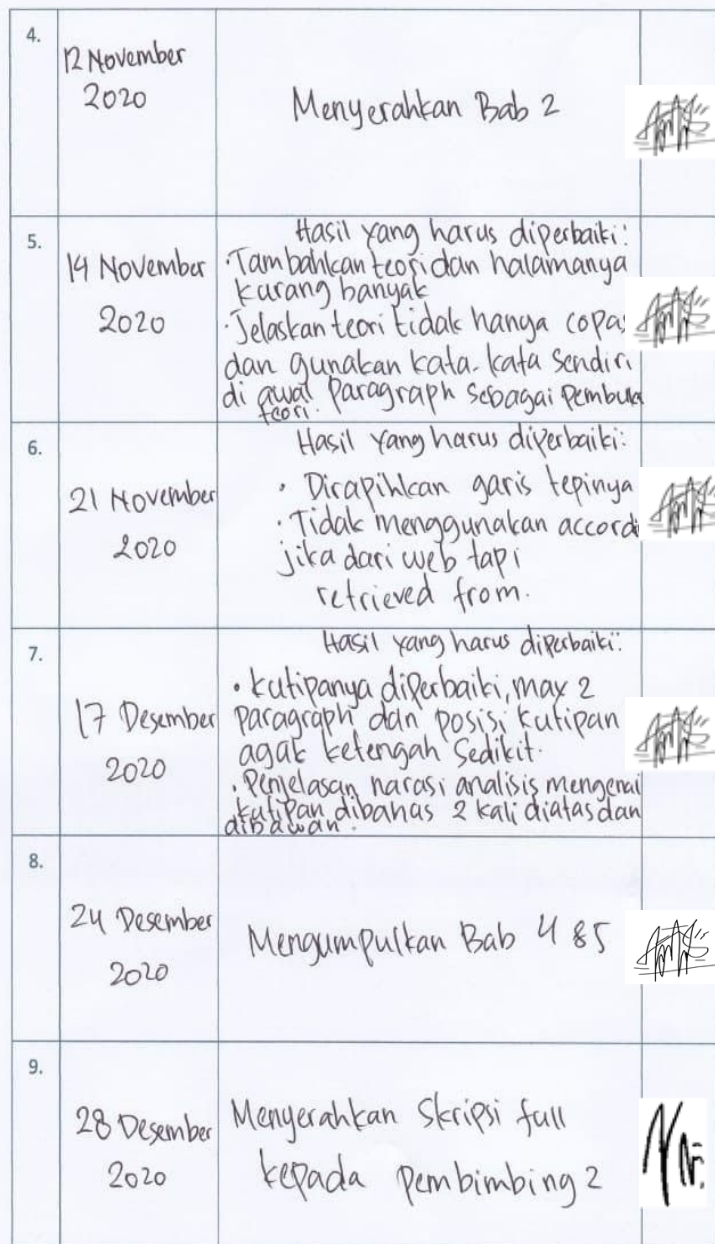 4.
12 November
2020
Menyerahkan Bab 2
5.
14 November
2020
Hasil yang harus diperbaiki:
·Tambahkan teori dan halamanya
kurang banyak
·Jelaskan teori tidak hanya copas
dan gunakan kata-kata sendiri
di awal Paragraph sebagai Pembuka
teori.
6.
21 November
2020
Hasil yang harus diperbaiki:
· Dirapihkan garis tepinya
· Tidak menggunakan accordi
jika dari web tapi
retrieved from.
7.
17 Desember
2020
Hasil yang harus diperbaiki:
· kutipanya diperbaiki, max 2
Paragraph dan posisi kutipan
agak ketengah sedikit.
· Penjelasan narasi analisis mengenai
kutipan dibahas 2 kali diatas dan
dibawah.
8.
24 Desember
2020
Mengumpulkan Bab 4 & 5
9.
28 Desember
2020
Menyerahkan Skripsi full
kepada Pembimbing 2